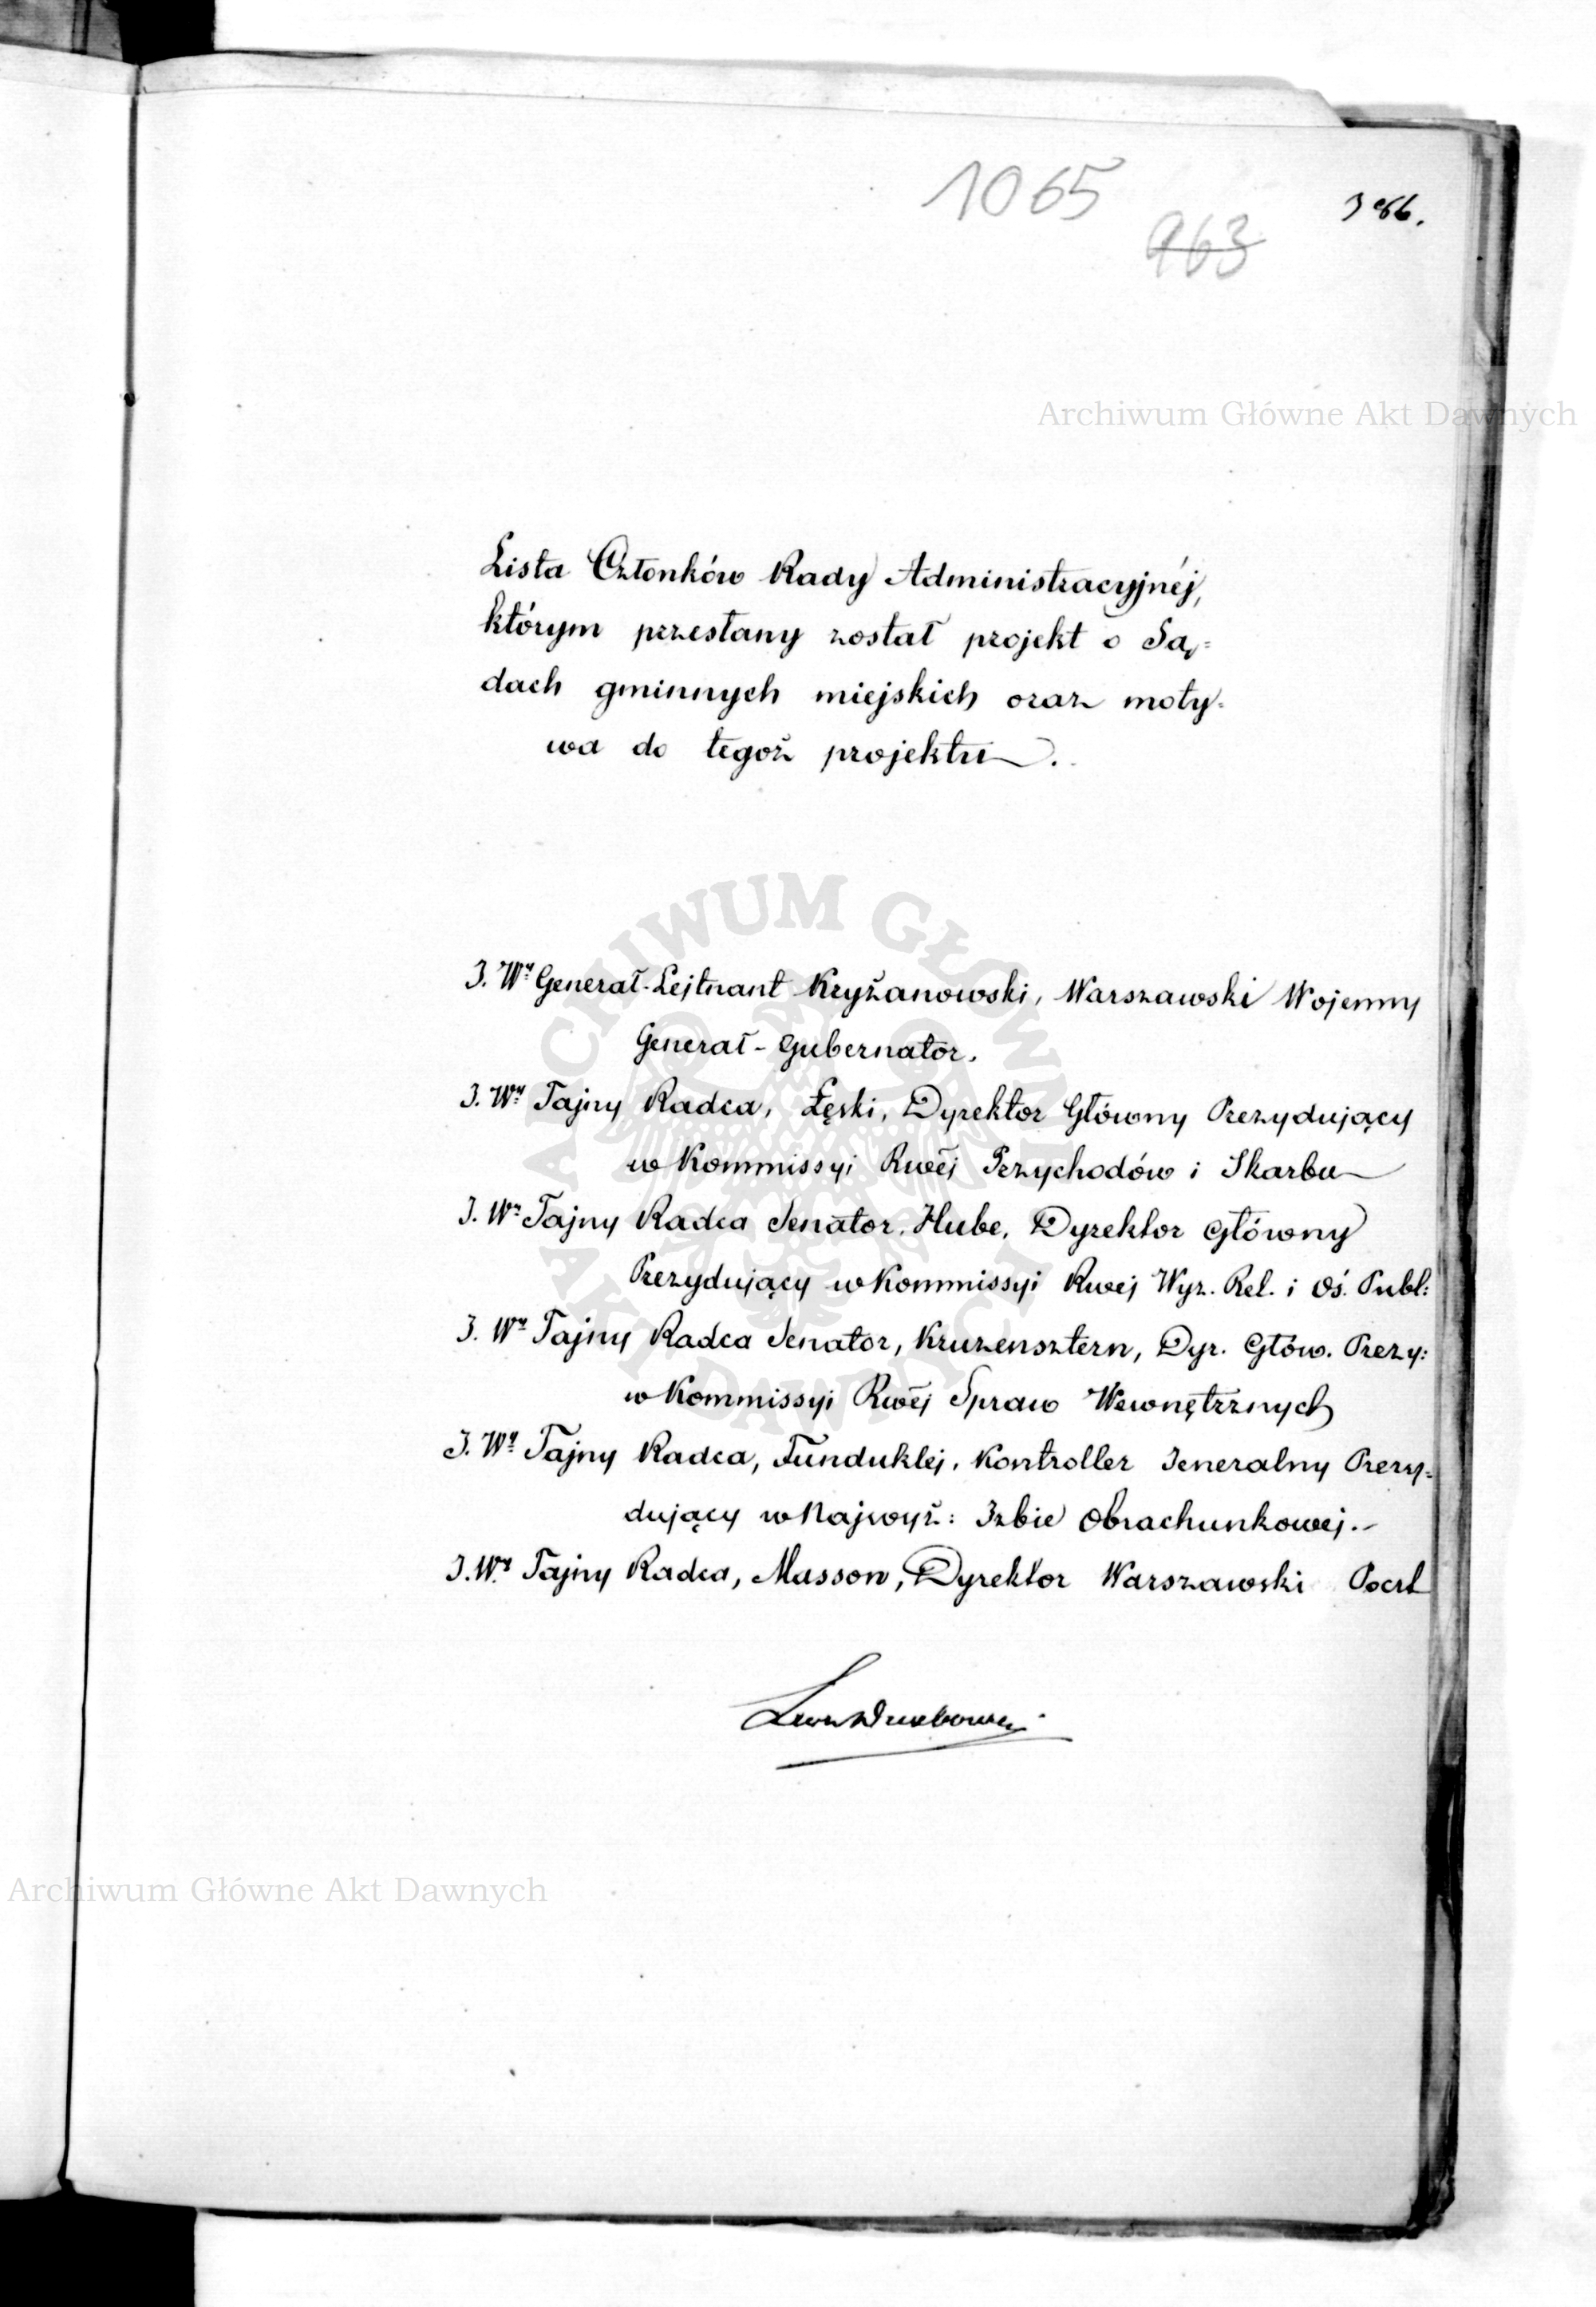 1065
963
386.
Archiwum Główne Akt Dawnych
Lista Członków Rady Administracyjnéj,
którym przesłany został projekt o Są=
dach gminnych miejskich oraz moty=
wa do tegoż projektu.
ARCHIWUM GŁÓWNE
AKT DAWNYCH
J. Wy Generał-Lejtnant Kryżanowski, Warszawski Wojenny
Generał-Gubernator.
J. Wy Tajny Radca, Łęski, Dyrektor Główny Prezydujący
w Kommissyi Rwéj Przychodów i Skarbu
J. Wy Tajny Radca Senator, Hube, Dyrektor Główny
Prezydujący w Kommissyi Rwej Wyz. Rel. i Oś. Publ:
J. Wy Tajny Radca Senator, Kruzensztern, Dyr. Głów. Prezy:
w Kommissyi Rwéj Spraw Wewnętrznych
J. Wy Tajny Radca, Funduklej, Kontroller Jeneralny Prezy=
dujący w Najwyż: Izbie Obrachunkowej.-
J. Wy Tajny Radca, Masson, Dyrektor Warszawski Poczt
Archiwum Główne Akt Dawnych